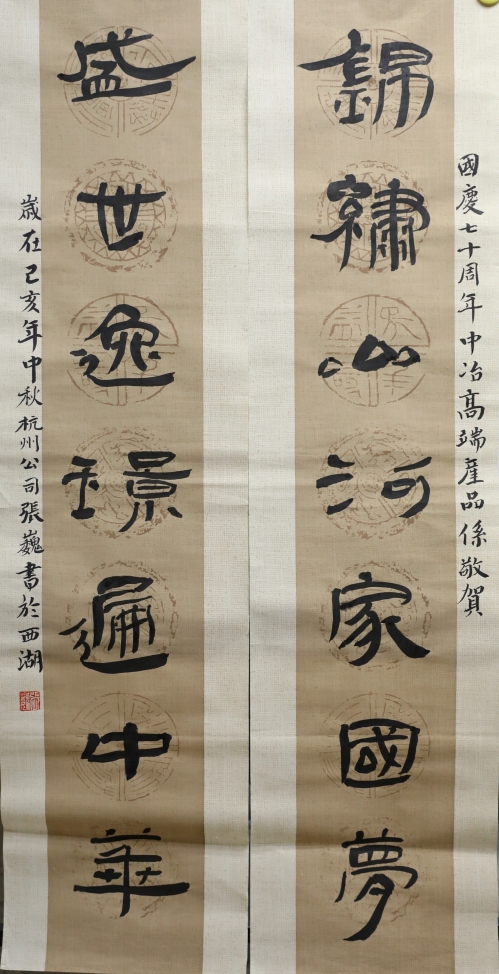 國慶七十周年中冶高端產品係敬賀
錦繡山河家國夢
盛世逸璟遍中華
歲在己亥年中秋杭州公司張巍書於西湖